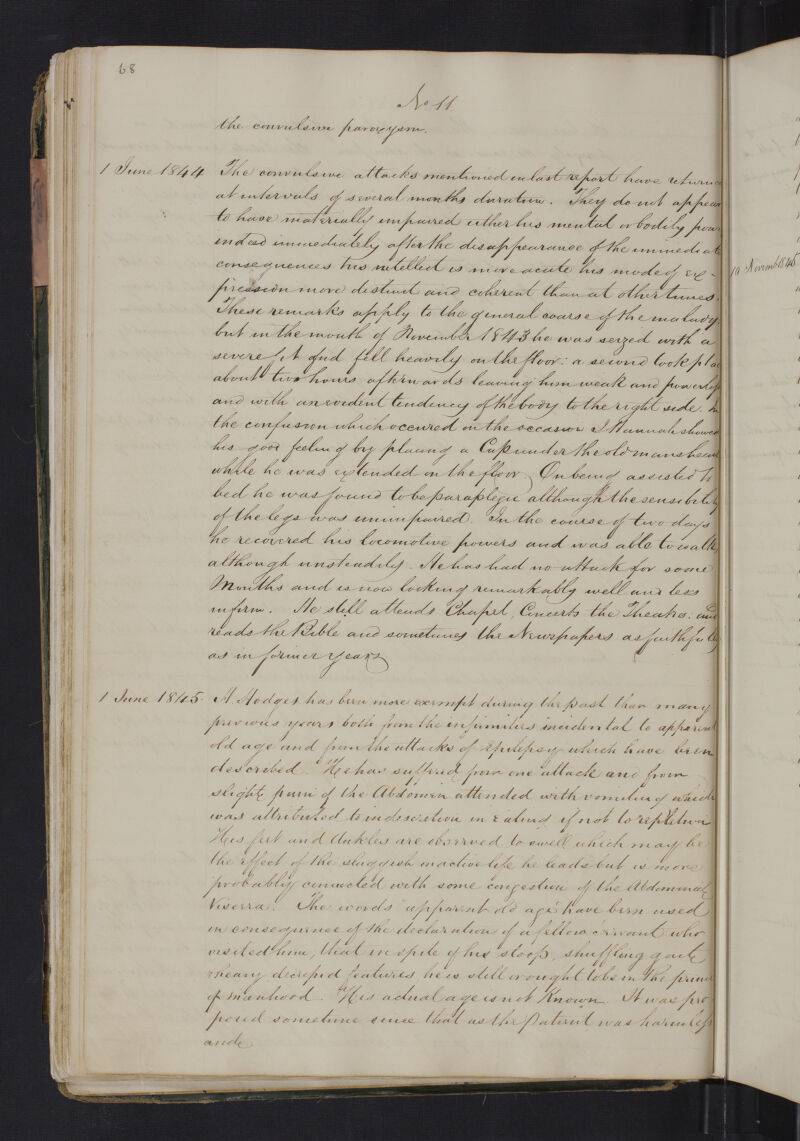 68
No 11
the convulsive paroxysm.
1 June 1844 The convulsive attacks mentioned in last report have returned
at intervals of several months duration. They do not appear
to have materially impaired either his mental or bodily pow
indeed immediately after the disappearance of the immediate
consequences his intellect is more acute his mode of ex-
pression more distinct and coherent than at other times.
These remarks apply to the general course of the malady,
but in the month of November 1843 he was seized with a
severe fit and fell heavily on the floor: a second took pla
about two hours afterwards leaving him weak and powerless
and with an evident tendency of the body to the right side. In
the confusion which occured on the occasion J Hannah showed
his good feeling by placing a Cap under the old mans head
while he was extended on the floor. On being assisted to
bed he was found to be paraplegic although the sensibility
of the legs was unimpaired. In the course of two days
he recovered his locomotive powers and was able to walk
although unsteadily. He has had no attack for some
Months and is now looking remarkably well and less
infirm. He still attends Chapel, Concerts the Theatre: and
reads the Bible and sometimes the Newspapers as faithfully
as in former years
1 June 1845. Hodges has been more exempt during the past than many
previous years both from the infirmities incidental to apparent
old age and from the attacks of epilepsy which have been
described. He has suffered from one attack and from
slight pain of the Abdomen attended with vomiting which
was attributed to indiscretion in eating if not to repletion
His feet and Ankles are observed to swell which may be
the effect of the sluggish inactive life he leads but is more
probably connected with some congestion of the Abdominal
Viscera. The words "apparent old age" have been used
in consequence of the declaration of a fellow servant who
visited him, that in spite of his stoop, shuffling gait
decrepid features he is still to be in the prime
of manhood. His actual age is not Known. It was pro
posed sometime since that as the Patient was harmless
and
10 November 1845